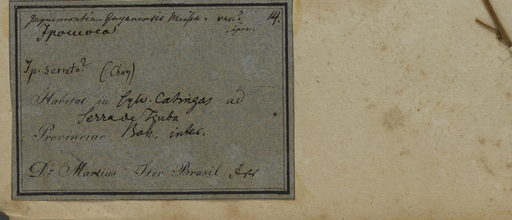 Jaquemontia Guyanensis Meissn. var.? 14.
Ipomoea
Ip. serrata? (Choisy)
Habitat in Sylv. Catingas ad
Serra de Tiuba
Provinciae Bah. inter.
Dr. Martius Iter Brasil